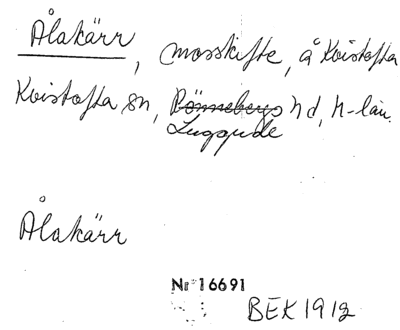 Ålakärr, mosskifte, å Kvistofta
Kvistofta sn, Rönnebergs hd, M-län.
Luggude
Ålakärr
Nr 16691
BEK 1912